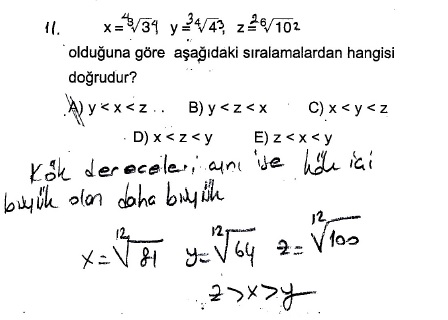 11. x=⁴∛3⁴ y=³∜4³ z=²⁶√10²
olduğuna göre aşağıdaki sıralamalardan hangisi
doğrudur?
A) y < x < z . . B) y < z < x C) x < y < z
D) x < z < y E) z < x < y
Kök dereceleri aynı ise kök içi
büyük olan daha büyük
x = ¹²√81 y = ¹²√64 z = ¹²√100
z > x > y